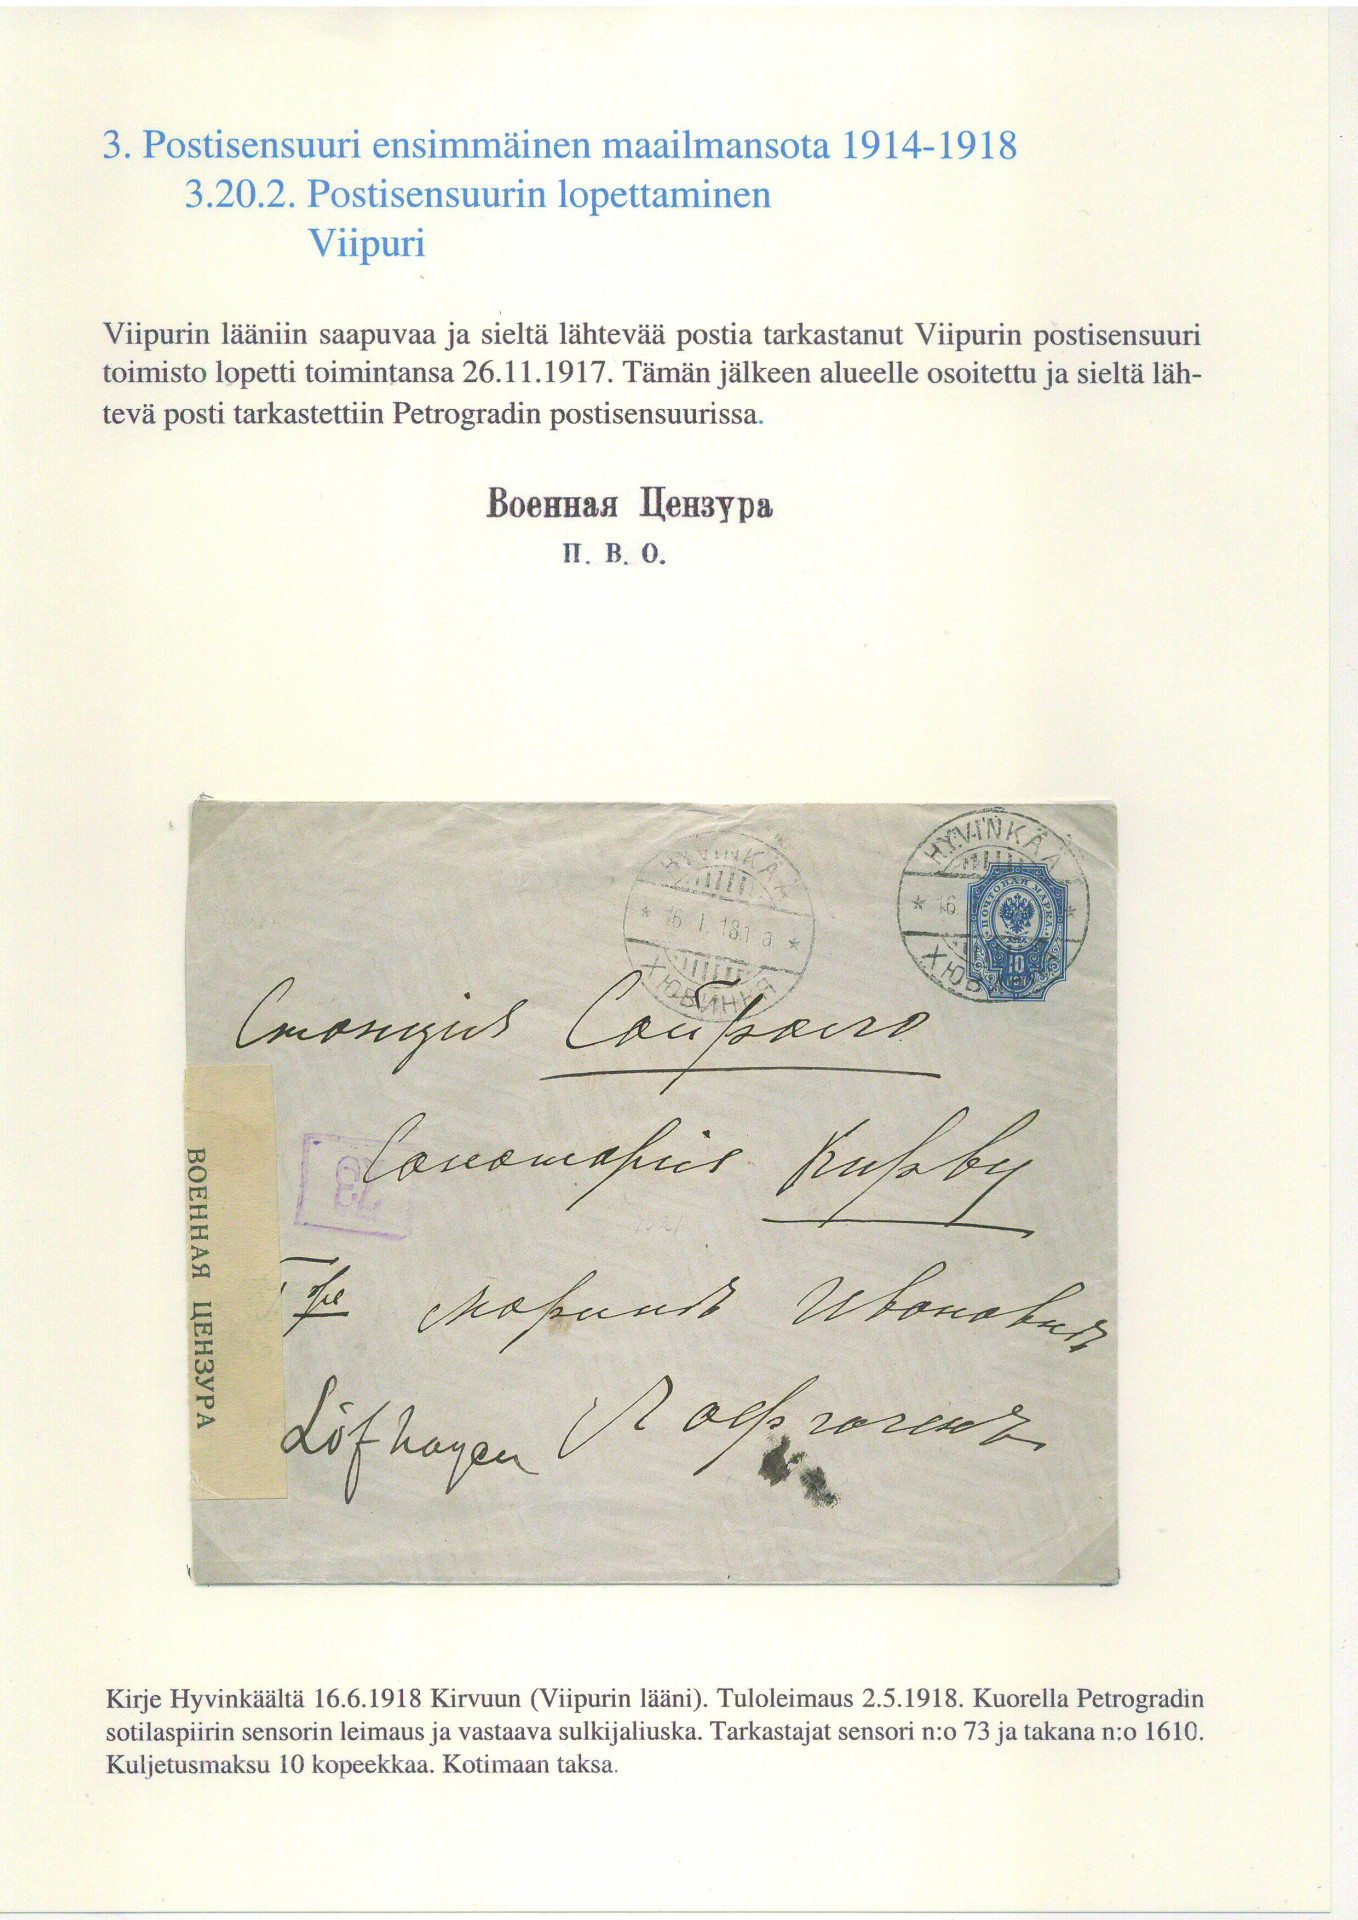 3. Postisensuuri ensimmäinen maailmansota 1914-1918
3.20.2. Postisensuurin lopettaminen
Viipuri
Viipurin lääniin saapuvaa ja sieltä lähtevää postia tarkastanut Viipurin postisensuuri
toimisto lopetti toimintansa 26.11.1917. Tämän jälkeen alueelle osoitettu ja sieltä läh-
tevä posti tarkastettiin Petrogradin postisensuurissa.
Военная Цензура
П. В. О.
HYVINKÄÄ
16. I. 18.
ХЮВИНКЯ
HYVINKÄÄ
16.
ПОЧТОВАЯ МАРКА
10
Станцiя Сайрала
Санаторiя Кирву
73
ВОЕННАЯ ЦЕНЗУРА
Löfhagen
Kirje Hyvinkäältä 16.6.1918 Kirvuun (Viipurin lääni). Tuloleimaus 2.5.1918. Kuorella Petrogradin
sotilaspiirin sensorin leimaus ja vastaava sulkijaliuska. Tarkastajat sensori n:o 73 ja takana n:o 1610.
Kuljetusmaksu 10 kopeekkaa. Kotimaan taksa.